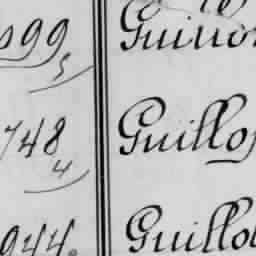 099 Guillo
5
748 Guillo
4
944 Guillo